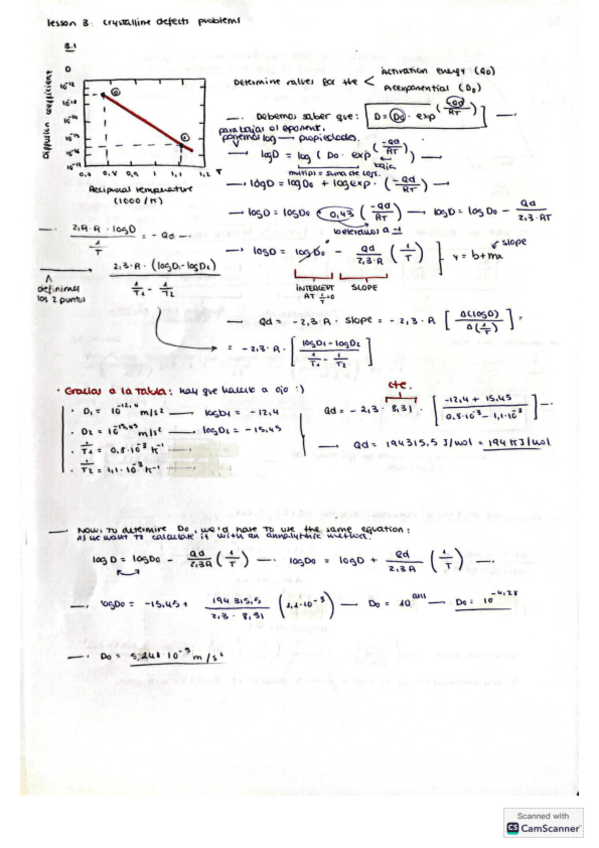 lesson 3: crystalline defects problems
3.1
Diffusion coefficient
D
0,8 1 1,1 1,2
Reciprocal temperature
(1000/K)
Determine values for the < activation energy (Qd)
Preexponential (Do)
—. Debemos saber que: D = Do · exp(-Qd/RT)
para bajar el exponente,
ponemos log → propiedades.
→ logD = log (Do · exp(-Qd/RT)) —
baja
→ logD = logDo + log exp · (-Qd/RT) —
→ logD = logDo + 0,43 (-Qd/RT) → logD = log Do - Qd/2,3·RT
→ logD = logDo - Qd/2,3·R (1/T) } y = b + mx
slope
INTERCEPT AT 1/T=0
SLOPE
—. 2,3·R·logD / 1/T = - Qd —.
2,3·R·(logD1 - logD2) / 1/T1 - 1/T2
definimos
los 2 puntos
→ Qd = -2,3·R· slope = -2,3·R [Δ(logD)/Δ(1/T)] =
= -2,3·R· [logD1 - logD2 / 1/T1 - 1/T2]
· Gracias a la Tabla: hay que hacerlo a ojo :)
· D1 = 10^-12,4 m/s² → logD1 = -12,4
· D2 = 10^-15,45 m/s² → logD2 = -15,45
· 1/T1 = 0,8·10^-3 K^-1
· 1/T2 = 1,1·10^-3 K^-1
cte.
Qd = -2,3 · 8,31 · [-12,4 + 15,45 / 0,8·10^-3 - 1,1·10^-3] —.
→ Qd = 194315,5 J/mol = 194 KJ/mol
—. Now, to determine Do, we'd have to use the same equation:
As we want to calculate it with an annalythic method.
log D = logDo - Qd/2,3R (1/T) —. logDo = logD + Qd/2,3R (1/T)
—. logDo = -15,45 + 194315,5/2,3·8,31 (1,1·10^-3) — Do = 10^ans — Do = 10^-4,28
—. Do = 5,248·10^-5 m/s²
Scanned with
CS CamScanner